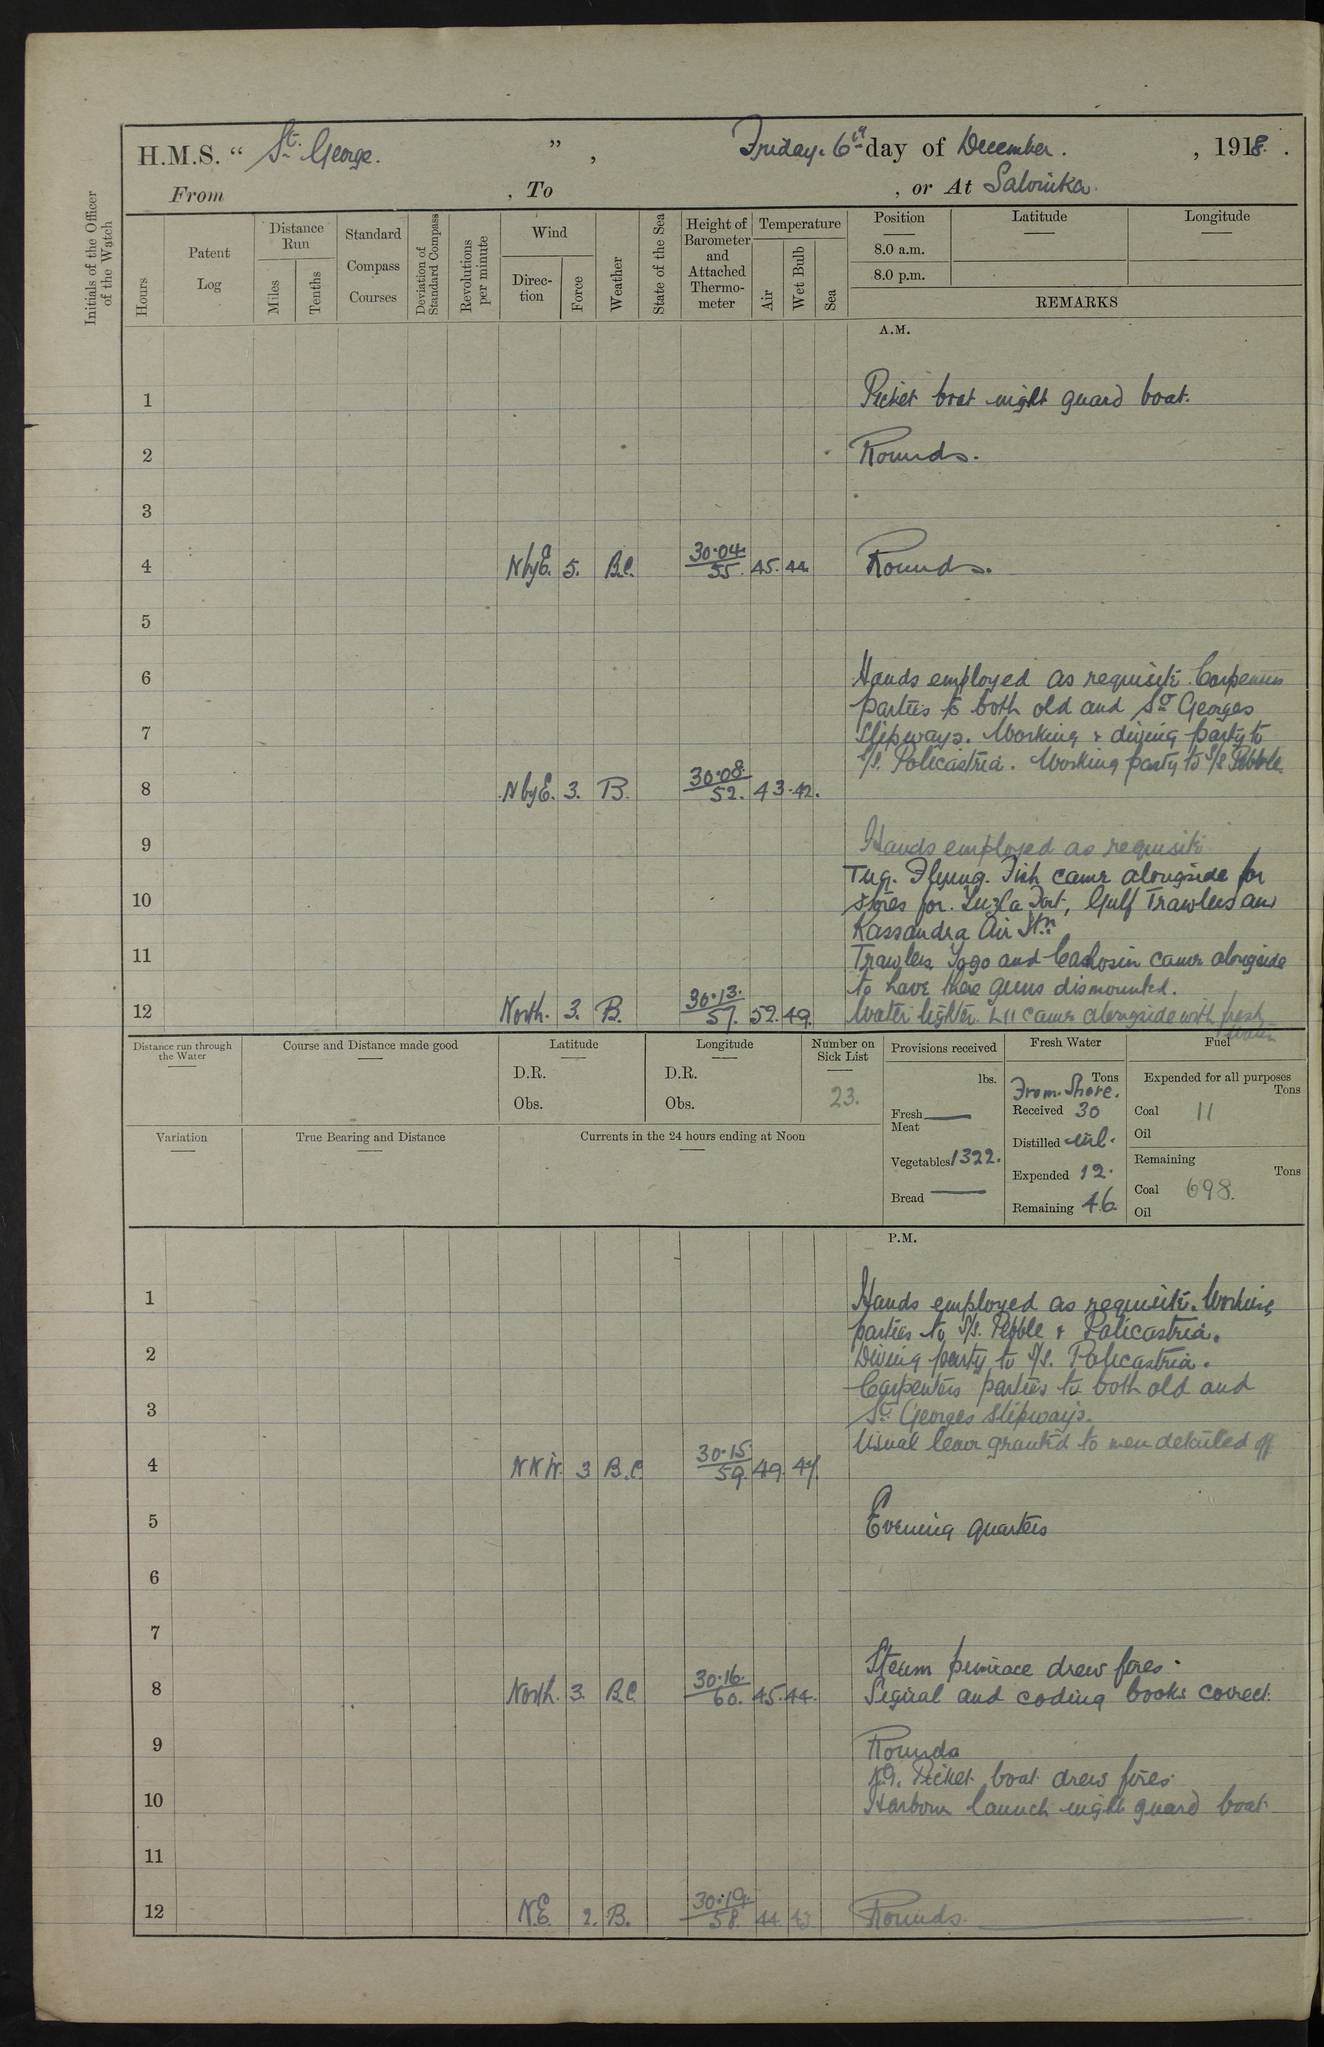 H.M.S. “ St. George. ” , Friday. 6th day of December. , 1918.
From , To , or At Salonika.
Initials of the Officer of the Watch
Hours
Patent Log
Distance Run
Miles
Tenths
Standard Compass Courses
Deviation of Standard Compass
Revolutions per minute
Wind
Direc-tion
Force
Weather
State of the Sea
Height of Barometer and Attached Thermo-meter
Temperature
Air
Wet Bulb
Sea
Position
8.0 a.m.
8.0 p.m.
Latitude
Longitude
REMARKS
A.M.
1 Picket boat night guard boat.
2 Rounds.
3
4 N by E. 5. B.C. 30.04 55. 45. 44. Rounds.
5
6 Hands employed as requisite. Carpenters
parties to both old and St Georges
7 Slipways. Working & diving party to
S/S. Policastria. Working party to S/S Pebble
8 N by E. 3. B. 30.08. 52. 43. 42.
9 Hands employed as requisite
Tug. Flying. Fish came alongside for
10 stores for. Tuzla Fort, Gulf Trawlers and
Kassandra Air Stn
11 Trawlers Yogo and came alongside
to have there guns dismounted.
12 North. 3. B. 30.13. 57. 52. 49. Water lighter L11 came alongside with fresh
water
Distance run through the Water
Course and Distance made good
Latitude
D.R.
Obs.
Longitude
D.R.
Obs.
Number on Sick List
23.
Provisions received
lbs.
Fresh Meat —
Vegetables 1322.
Bread —
Fresh Water
Tons
From. Shore.
Received 30
Distilled nil.
Expended 12.
Remaining 46.
Fuel
Expended for all purposes
Tons
Coal 11
Oil
Remaining
Tons
Coal 698.
Oil
Variation
True Bearing and Distance
Currents in the 24 hours ending at Noon
P.M.
1 Hands employed as requisite. Working
parties to S/S. Pebble & Policastria.
2 Diving party to S/S. Policastria.
Carpenters parties to both old and
3 St Georges slipways.
Usual leave granted to men detailed off
4 NNW. 3 B.C. 30.15. 59. 49. 47.
5 Evening quarters
6
7
Steam pinnace drew fires.
8 North. 3. B.C. 30.16. 60. 45. 44. Signal and coding books correct.
9 Rounds
Picket boat drew fires.
10 Harbour launch night guard boat.
11
12 N.E. 2. B. 30.19. 58. 44. 43 Rounds.